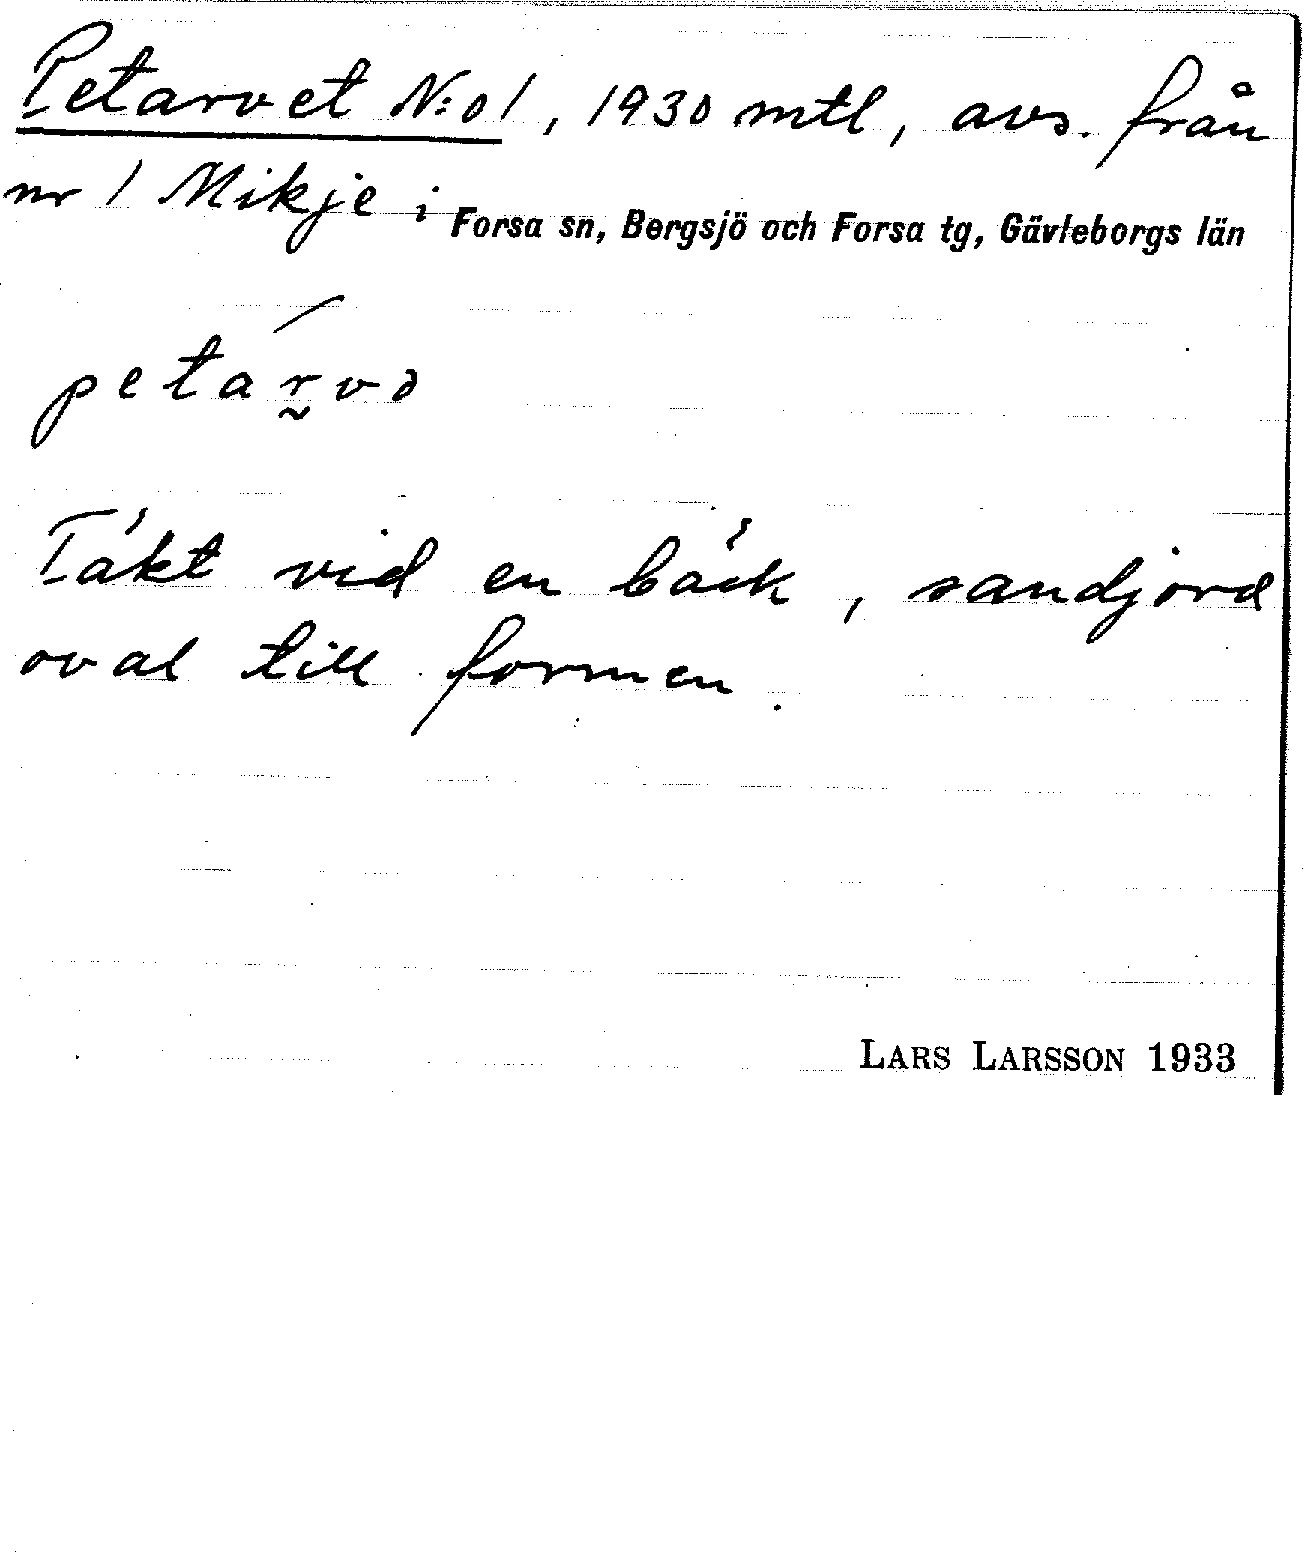 Petarvet N:o 1, 1930 mtl, avs. från
nr 1 Mikje i Forsa sn, Bergsjö och Forsa tg, Gävleborgs län
petar̰və
Täkt vid en bäck, sandjord
oval till formen.
LARS LARSSON 1933